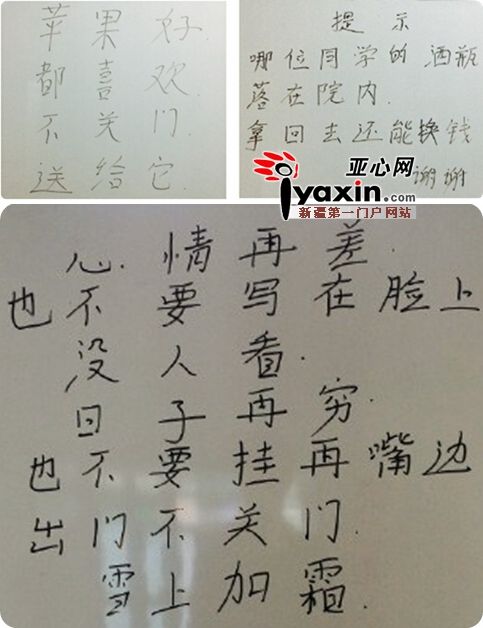 苹果好.
都喜欢.
不关门.
送给它.
提示
哪位同学的酒瓶
落在院内.
拿回去还能换钱
谢谢
亚心网
iyaxin.com
新疆第一门户网站
心情再差.
也不要写在脸上
没人看.
日子再穷.
也不要挂再嘴边
出门不关门.
雪上加霜.